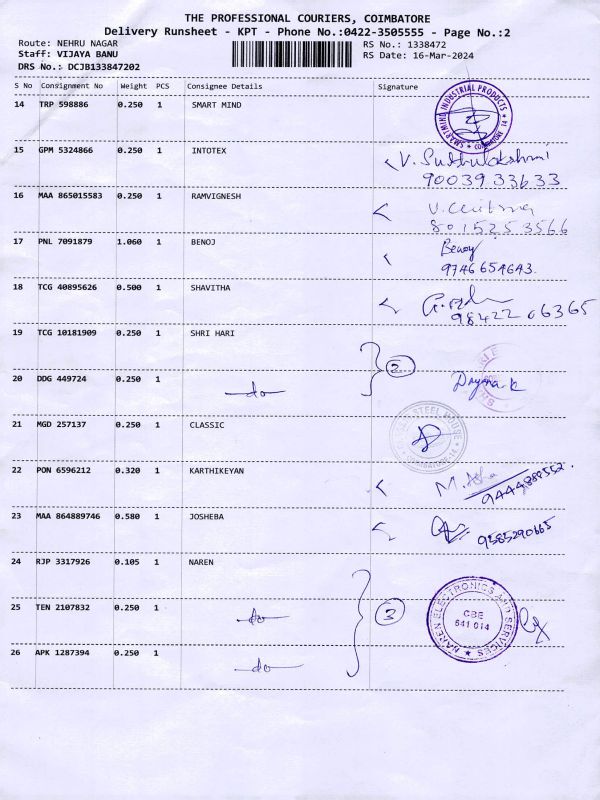 THE PROFESSIONAL COURIERS, COIMBATORE
Delivery Runsheet - KPT - Phone No.:0422-3505555 - Page No.:2
Route: NEHRU NAGAR RS No.: 1338472
Staff: VIJAYA BANU RS Date: 16-Mar-2024
DRS No.: DCJB133847202
S No Consignment No Weight PCS Consignee Details Signature
14 TRP 598886 0.250 1 SMART MIND
SMART MIND INDUSTRIAL PRODUCTS
COIMBATORE 14
15 GPM 5324866 0.250 1 INTOTEX
V. Suthulakshmi
9003933633
16 MAA 865015583 0.250 1 RAMVIGNESH
8015253566
17 PNL 7091879 1.060 1 BENOJ
Benoy
9746654643.
18 TCG 40895626 0.500 1 SHAVITHA
98422 06365
19 TCG 10181909 0.250 1 SHRI HARI
2
20 DDG 449724 0.250 1 do
21 MGD 257137 0.250 1 CLASSIC
STEEL HOUSE
COIMBATORE-14
22 PON 6596212 0.320 1 KARTHIKEYAN
M. Asha
23 MAA 864889746 0.580 1 JOSHEBA
9585290665
24 RJP 3317926 0.105 1 NAREN
25 TEN 2107832 0.250 1 do
3
NAREN ELECTRONICS AND SERVICES
CBE
641 014
26 APK 1287394 0.250 1 do